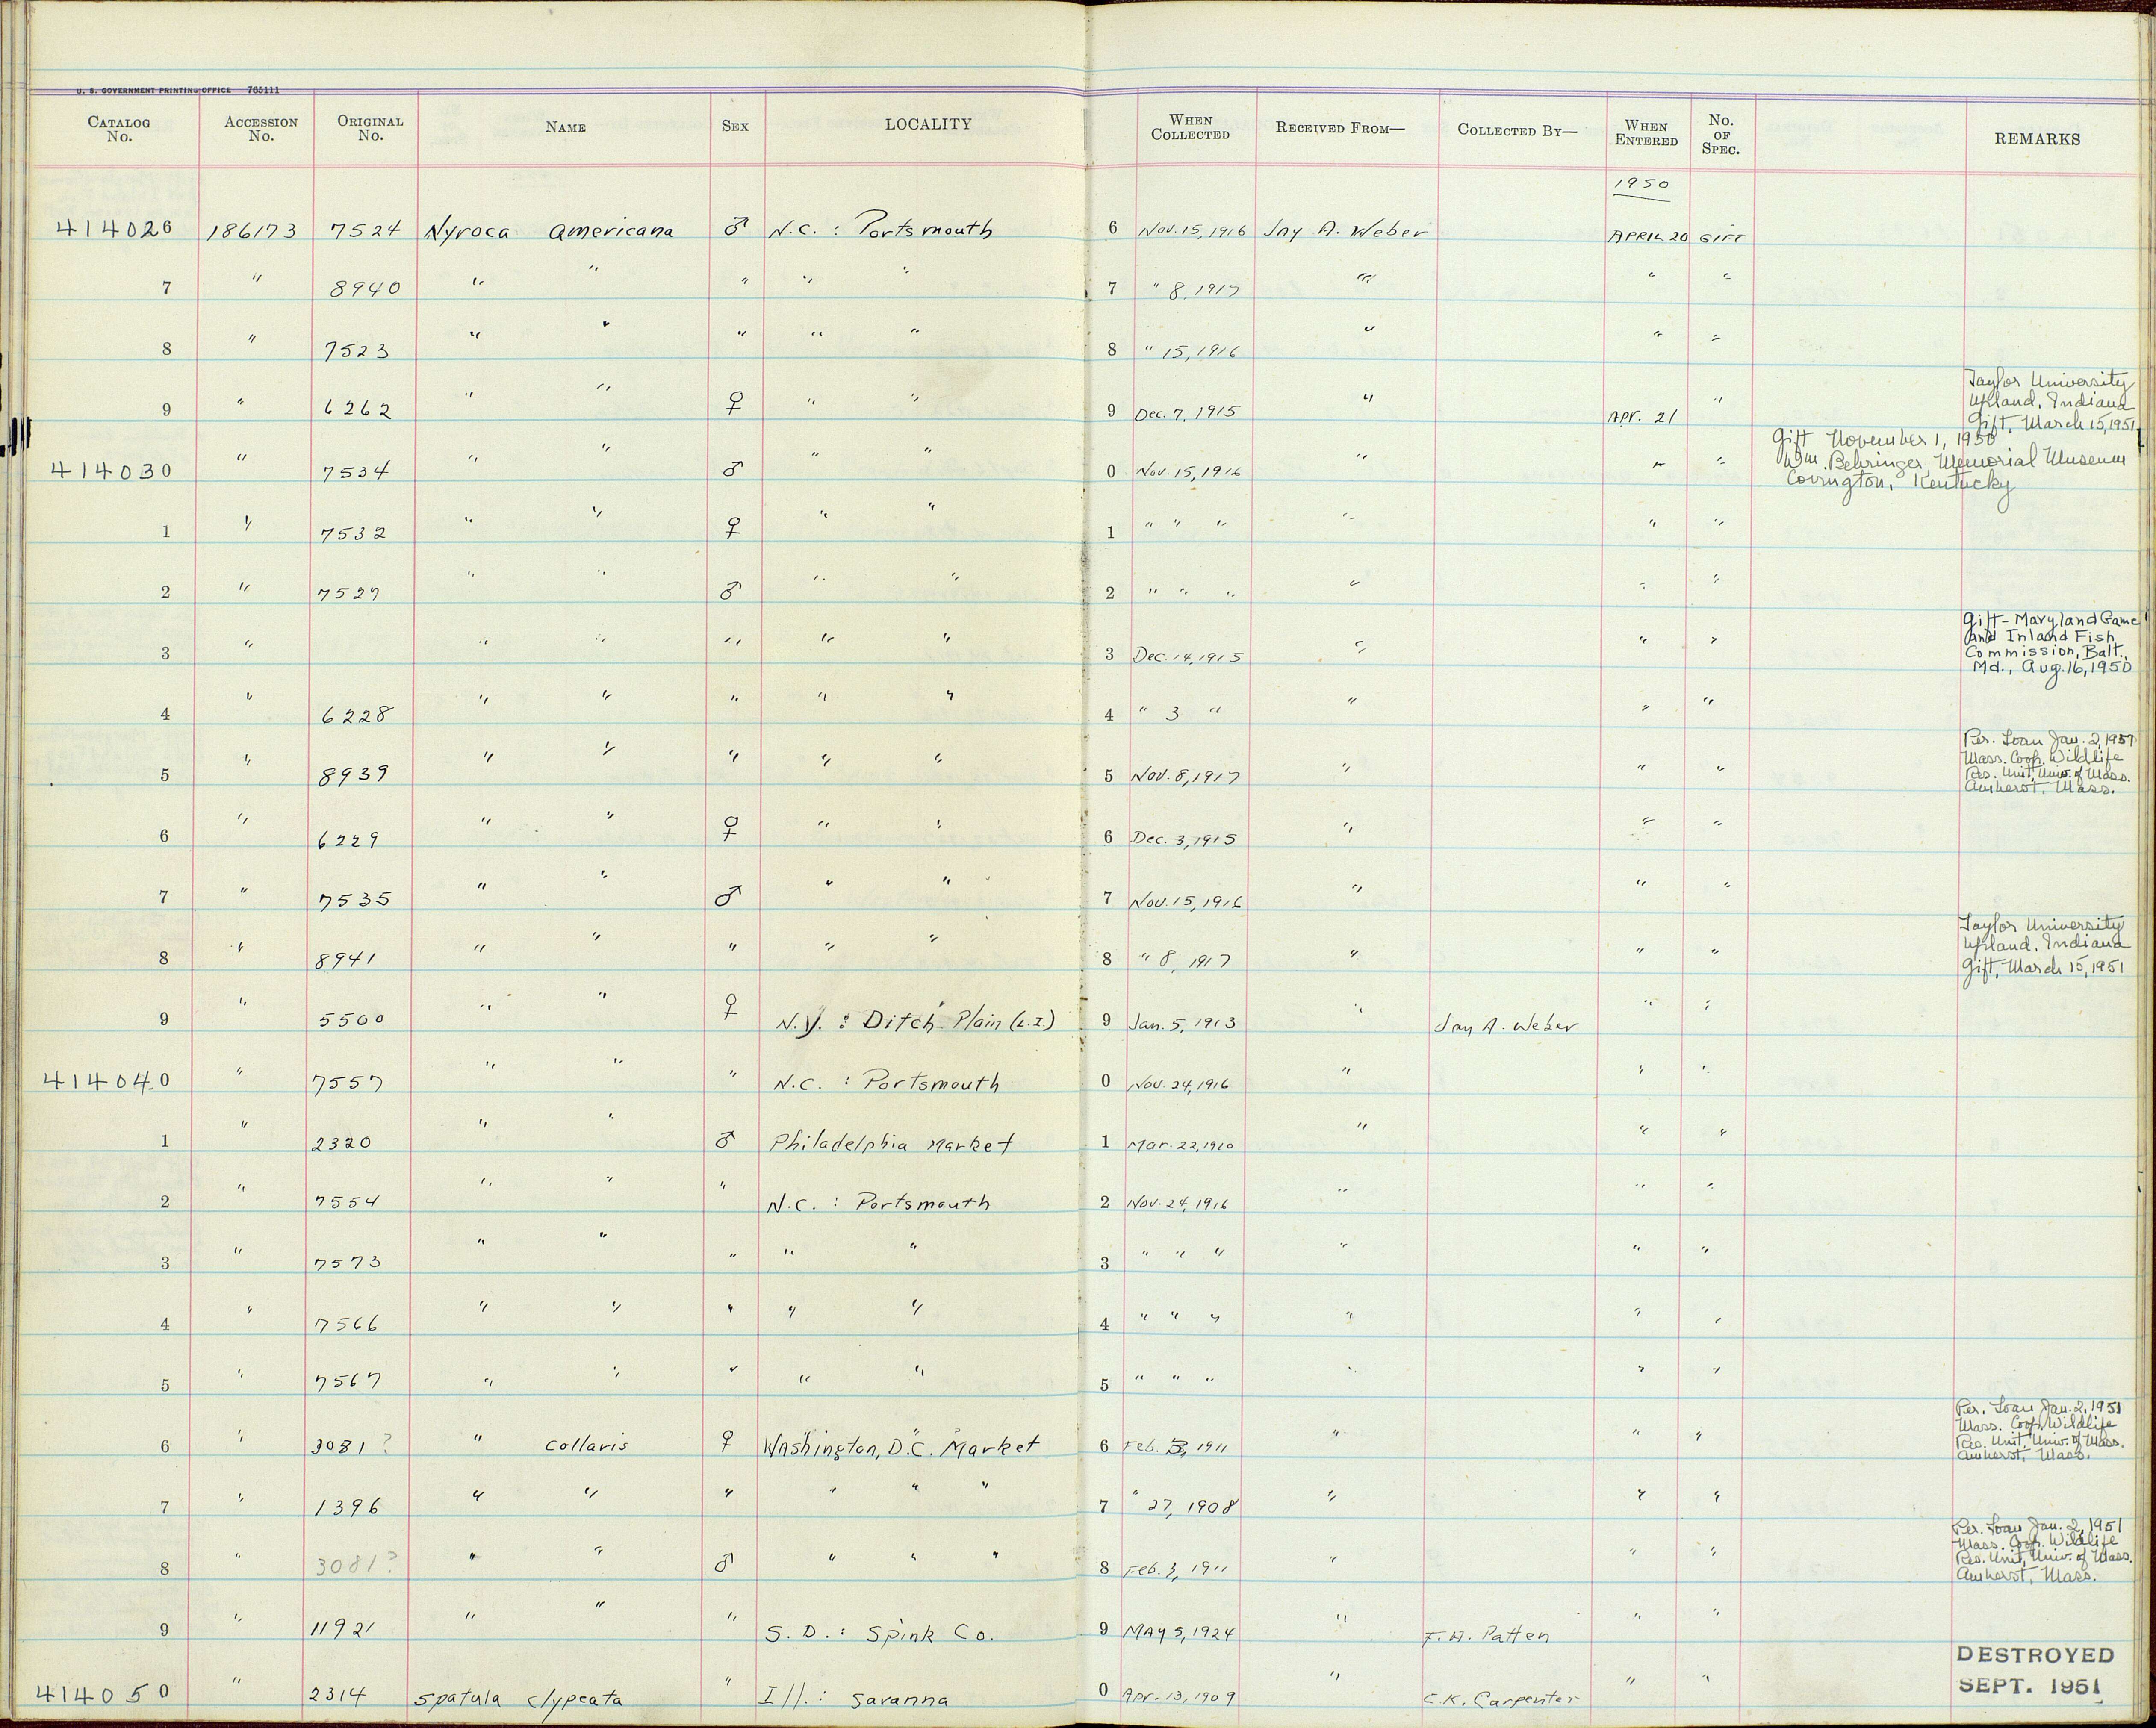 U. S. GOVERNMENT PRINTING OFFICE 765111
CATALOG No. ACCESSION No. ORIGINAL No. NAME SEX LOCALITY WHEN COLLECTED RECEIVED FROM— COLLECTED BY— WHEN ENTERED No. OF SPEC. REMARKS
1950
414026 186173 7524 Nyroca americana ♂ N.C. : Portsmouth 6 Nov. 15, 1916 Jay A. Weber APRIL 20 GIFT
7 " 8940 " " " " " 7 " 8, 1917 " " "
8 " 7523 " " " " " 8 " 15, 1916 " " "
9 " 6262 " " ♀ " " 9 Dec. 7, 1915 " Apr. 21 " Taylor University
Upland, Indiana
Gift, March 15, 1951
414030 " 7534 " " ♂ " " 0 Nov. 15, 1916 " " " Gift November 1, 1950
Wm. Behringer Memorial Museum
Covington, Kentucky
1 " 7532 " " ♀ " " 1 " " " " " "
2 " 7527 " " ♂ " " 2 " " " " " "
3 " " " " " " 3 Dec. 14, 1915 " " " Gift - Maryland Game
and Inland Fish
Commission, Balt.,
Md., Aug. 16, 1950
4 " 6228 " " " " " 4 " 3 " " " "
5 " 8939 " " " " " 5 Nov. 8, 1917 " " " Per. Loan Jan. 2, 1951
Mass. Coop. Wildlife
Res. Unit, Univ. of Mass.
Amherst, Mass.
6 " 6229 " " ♀ " " 6 Dec. 3, 1915 " " "
7 " 7535 " " ♂ " " 7 Nov. 15, 1916 " " "
8 " 8941 " " " " " 8 " 8, 1917 " " " Taylor University
Upland, Indiana
Gift, March 15, 1951
9 " 5500 " " ♀ N.Y. : Ditch Plain (L.I.) 9 Jan. 5, 1913 " Jay A. Weber " "
414040 " 7557 " " " N.C. : Portsmouth 0 Nov. 24, 1916 " " "
1 " 2320 " " ♂ Philadelphia Market 1 Mar. 22, 1910 " " "
2 " 7554 " " " N.C. : Portsmouth 2 Nov. 24, 1916 " " "
3 " 7573 " " " " " 3 " " " " " "
4 " 7566 " " " " " 4 " " " " " "
5 " 7567 " " " " " 5 " " " " " "
6 " 3081? " collaris ♀ Washington, D.C. Market 6 Feb. 3, 1911 " " " Per. Loan Jan. 2, 1951
Mass. Coop. Wildlife
Res. Unit, Univ. of Mass.
Amherst, Mass.
7 " 1396 " " " " " " 7 " 27, 1908 " " "
8 " 3081? " " ♂ " " " 8 Feb. 3, 1911 " " " Per. Loan Jan. 2, 1951
Mass. Coop. Wildlife
Res. Unit, Univ. of Mass.
Amherst, Mass.
9 " 11921 " " " S. D. : Spink Co. 9 MAY 5, 1924 " F. A. Patten " "
414050 " 2314 Spatula clypeata " Ill. : Savanna 0 Apr. 13, 1909 " C.K. Carpenter " " DESTROYED
SEPT. 1951